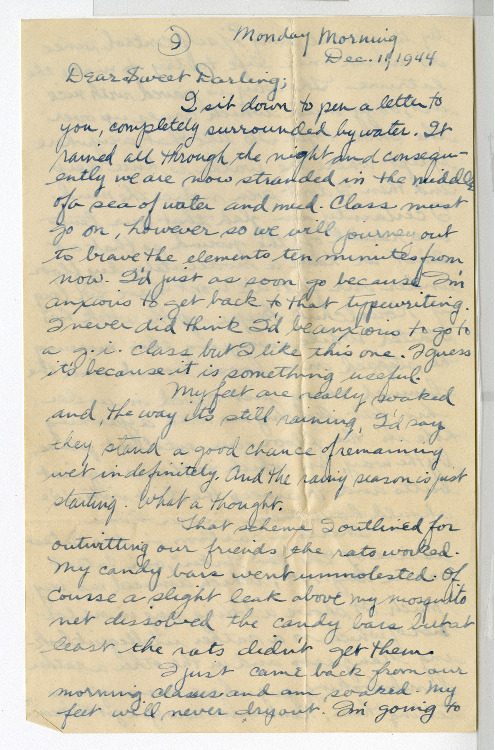 9
Monday Morning
Dec. 11, 1944
Dear Sweet Darling;
I sit down to pen a letter to
you, completely surrounded by water. It
rained all through the night and consequ-
ently we are now stranded in the middle
of a sea of water and mud. Class must
go on, however, so we will journey out
to brave the elements ten minutes from
now. I'd just as soon go because I'm
anxious to get back to that typewriting.
I never did think I'd be anxious to go to
a g.i. class but I like this one. I guess
it's because it is something useful.
My feet are really soaked
and, the way it's still raining, I'd say
they stand a good chance of remaining
wet indefinitely. And the rainy season is just
starting. What a thought.
That scheme I outlined for
outwitting our friends the rats worked.
My candy bars went unmolested. Of
course a slight leak above my mosquito
net dissolved the candy bars but at
least the rats didn't get them.
I just came back from our
morning classes and am soaked. My
feet will never dry out. I'm going to